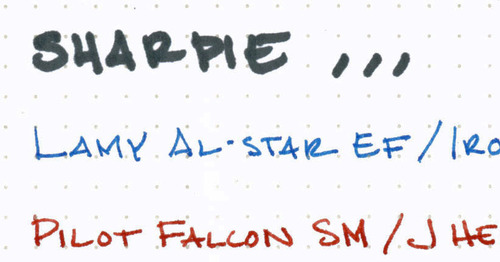 SHARPIE ,,,
LAMY AL-STAR EF / IRO
PILOT FALCON SM / J HE